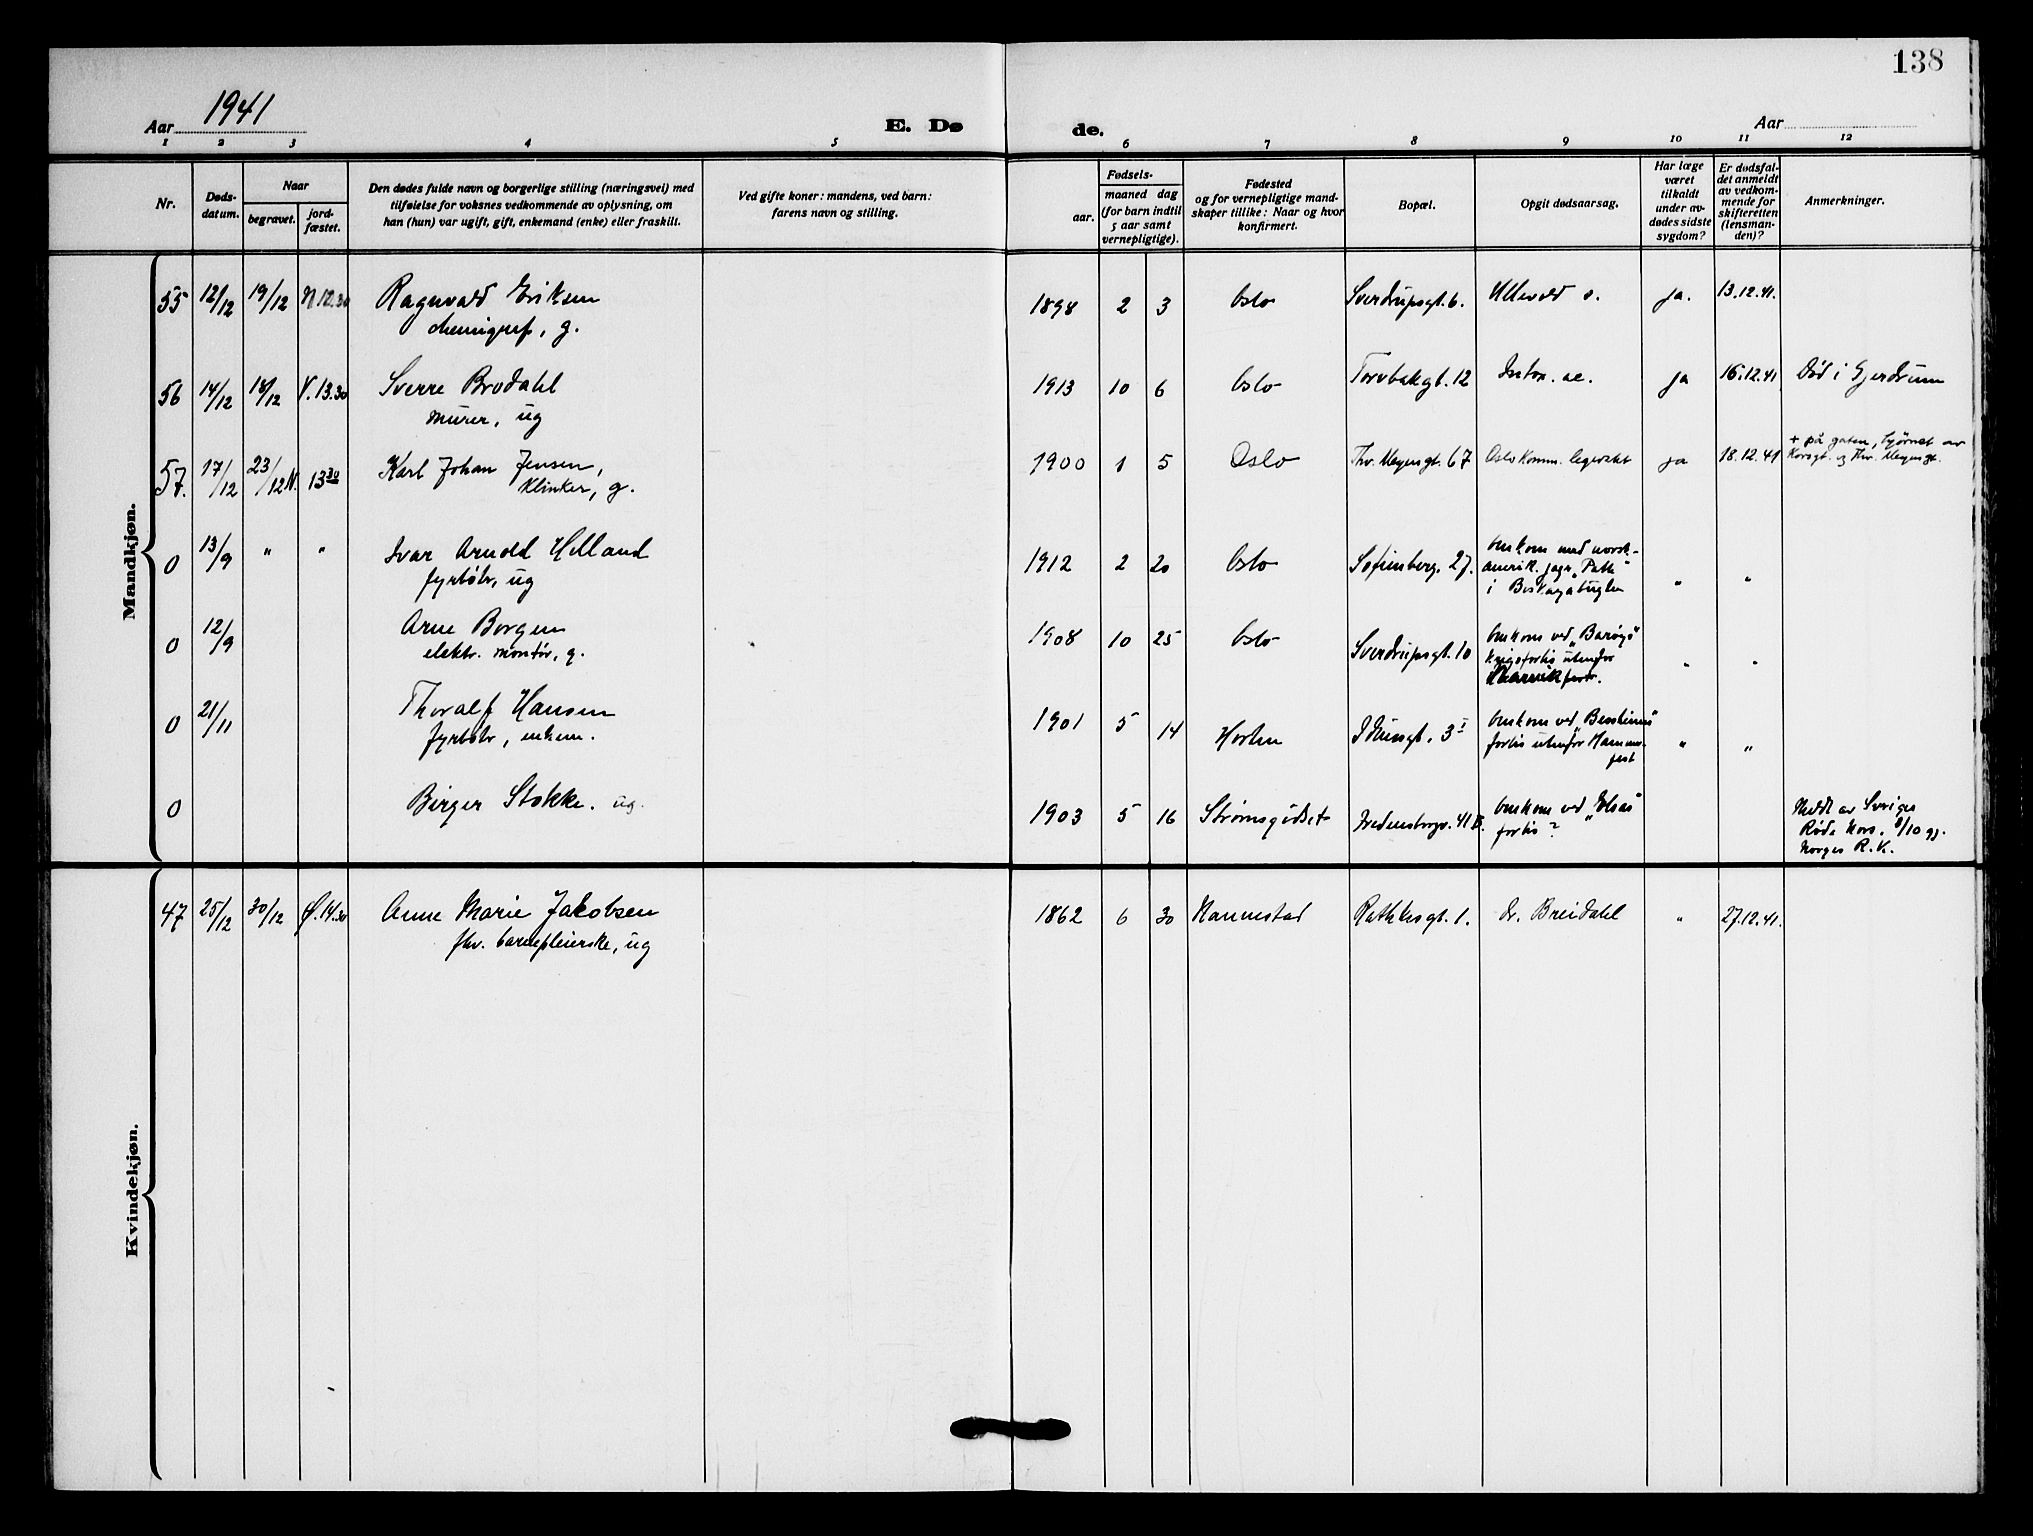 138
Aar 1941
E. Dø
de.
Aar
1 2 3 4 5 6 7 8 9 10 11 12
Nr.
Døds-
datum.
Naar
begravet.
jord-
fæstet.
Den dødes fulde navn og borgerlige stilling (næringsvei) med
tilføielse for voksnes vedkommende av oplysning, om
han (hun) var ugift, gift, enkemand (enke) eller fraskilt.
Ved gifte koner: mandens, ved barn:
farens navn og stilling.
Fødsels-
aar.
maaned dag
(for barn indtil
5 aar samt
vernepligtige).
Fødested
og for vernepligtige mand-
skaper tillike: Naar og hvor
konfirmert.
Bopæl.
Opgit dødsaarsag.
Har læge
været
tilkaldt
under av-
dødes sidste
sygdom?
Er dødsfal-
det anmeldt
av vedkom-
mende for
skifteretten
(lensman-
den)?
Anmerkninger.
Mandkjøn.
55 12/12 19/12 N 12.30 Ragnvald Eriksen 1898 2 3 Oslo Sverdrupsgt. 6. Ullevål s. ja. 13.12.41.
chemigraf, g.
56 14/12 18/12 V. 13.30 Sverre Brodahl 1913 10 6 Oslo Torvbakgt. 12 Intox. ac. ja 16.12.41 Død i Gjerdrum
murer, ug
57. 17/12 23/12 N. 13 30 Karl Johan Jensen, 1900 1 5 Oslo Thv. Meyersgt. 67 Oslo komm. legevakt ja 18.12.41 + på gaten, hjørnet av
klinker, g. Korsgt. og Thv. Meyersgt.
0 13/9 " " Ivar Arnold Helland 1912 2 20 Oslo Sofienberg. 27. Omkom med norsk-
fyrbøter, ug amerik. jager "
i Biskayabugten " "
0 12/9 Arne Borgen 1908 10 25 Oslo Sverdrupsgt. 10 Omkom ved "Barøys"
elektr. montør, g. krigsforlis utenfor " "
0 21/11 Thoralf Hansen 1901 5 14 Horten Idunsgt. 3 I Omkom ved
fyrbøter, enkem. forlis utenfor Hammer-
fest " "
0 Birger Stokke. ug. 1903 5 16 Strømsgodset Fredensborgv. 41 II. Omkom ved
forlis? Meddt av Sveriges
Røde Kors. 8/10 gj.
Norges R. K.
Kvindekjøn.
47 25/12 30/12 Ø. 14.30 Anne Marie Jakobsen 1862 6 30 Nannestad Rathkesgt. 1. dr. Breidahl " 27.12.41.
fhv. barnepleierske, ug